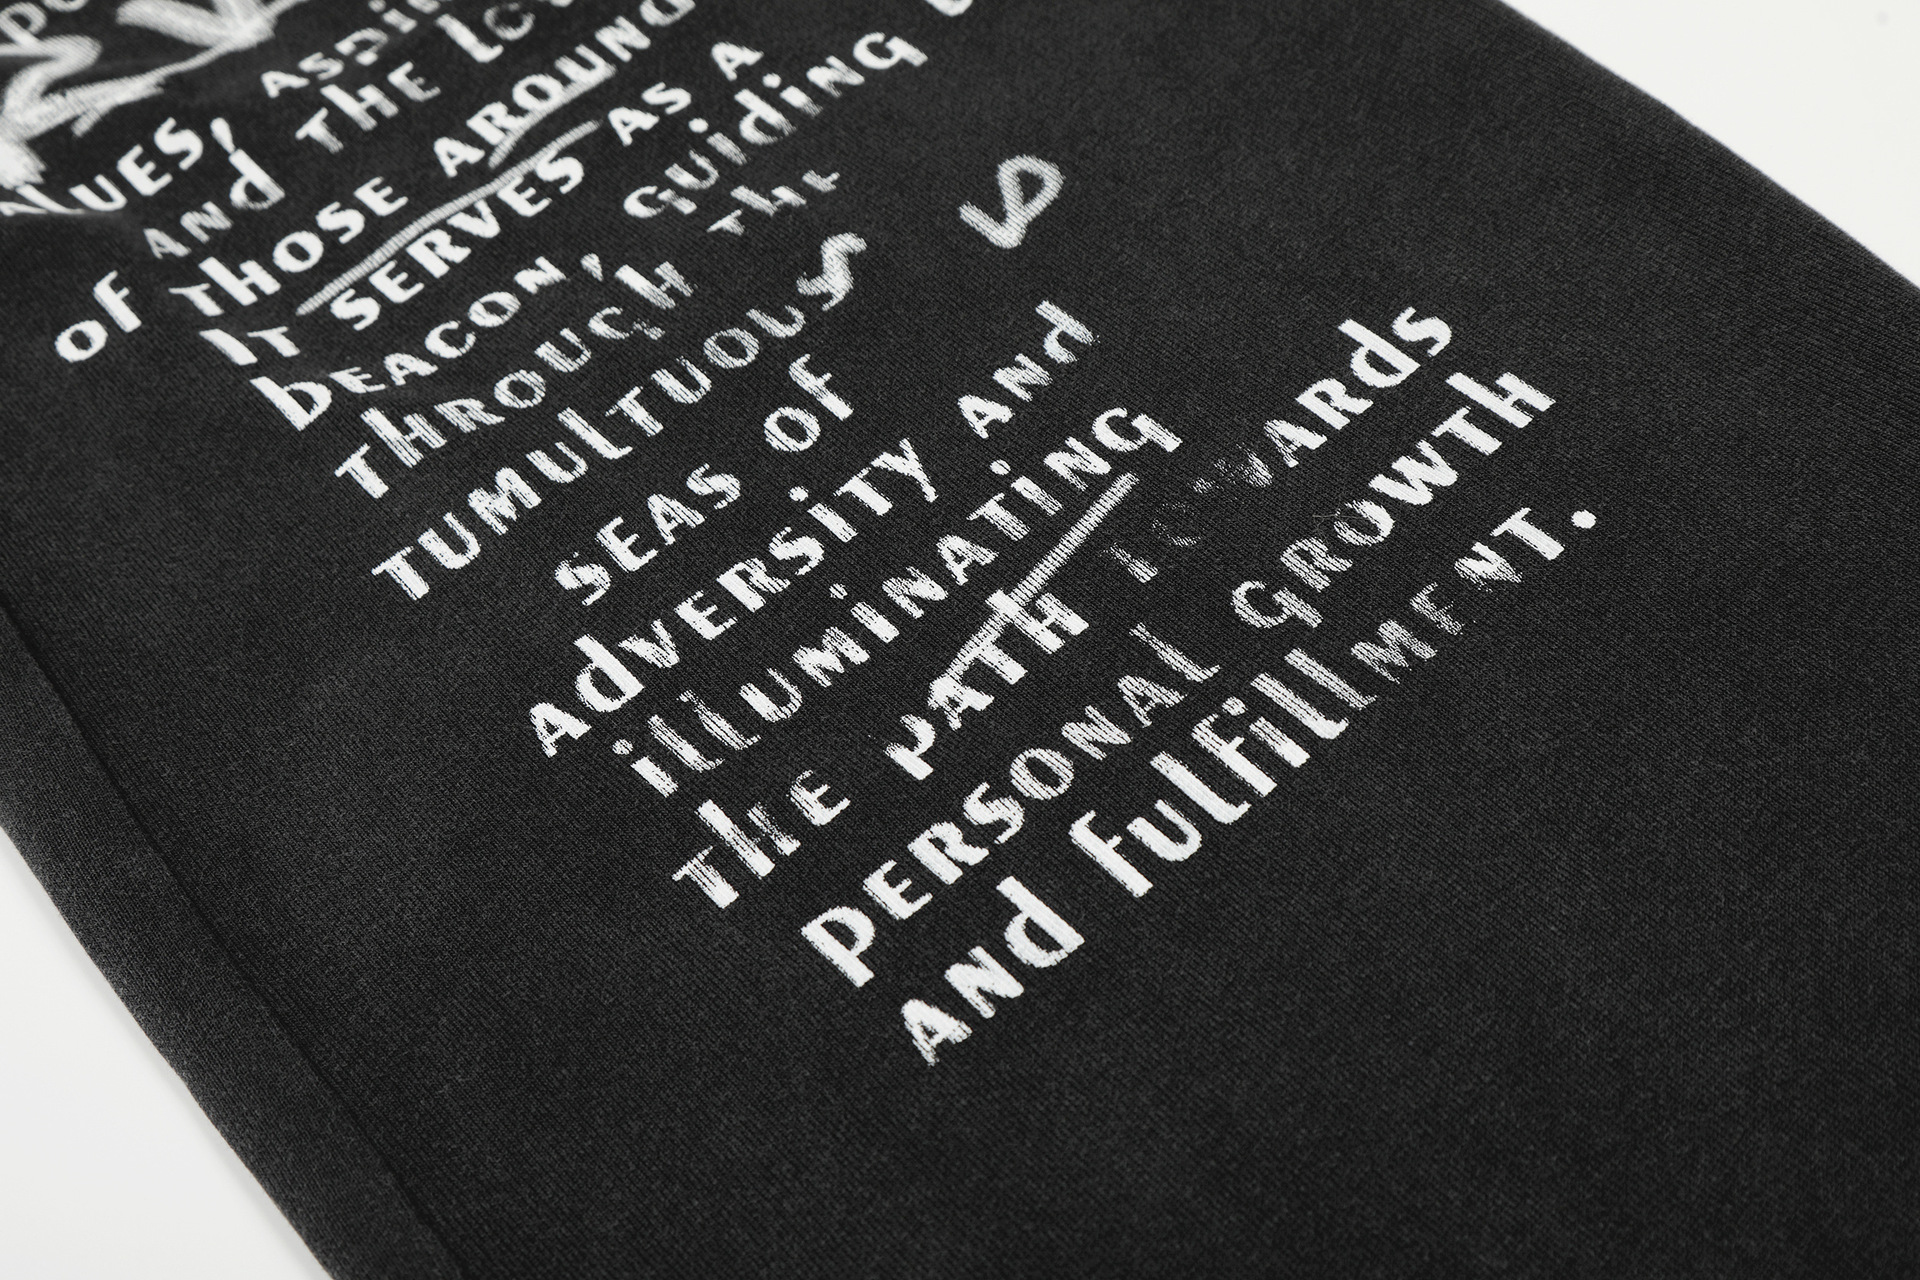 AND THE
OF THOSE AROUND
IT SERVES AS A
bEACON, GUidiNG
THROUGH THE
TUMULTUOUS
SEAS OF
AdVERSiTY ANd
illUMiNATiNG
THE PATH TOWARds
PERSONAL GROWTH
ANd FulfillMENT.